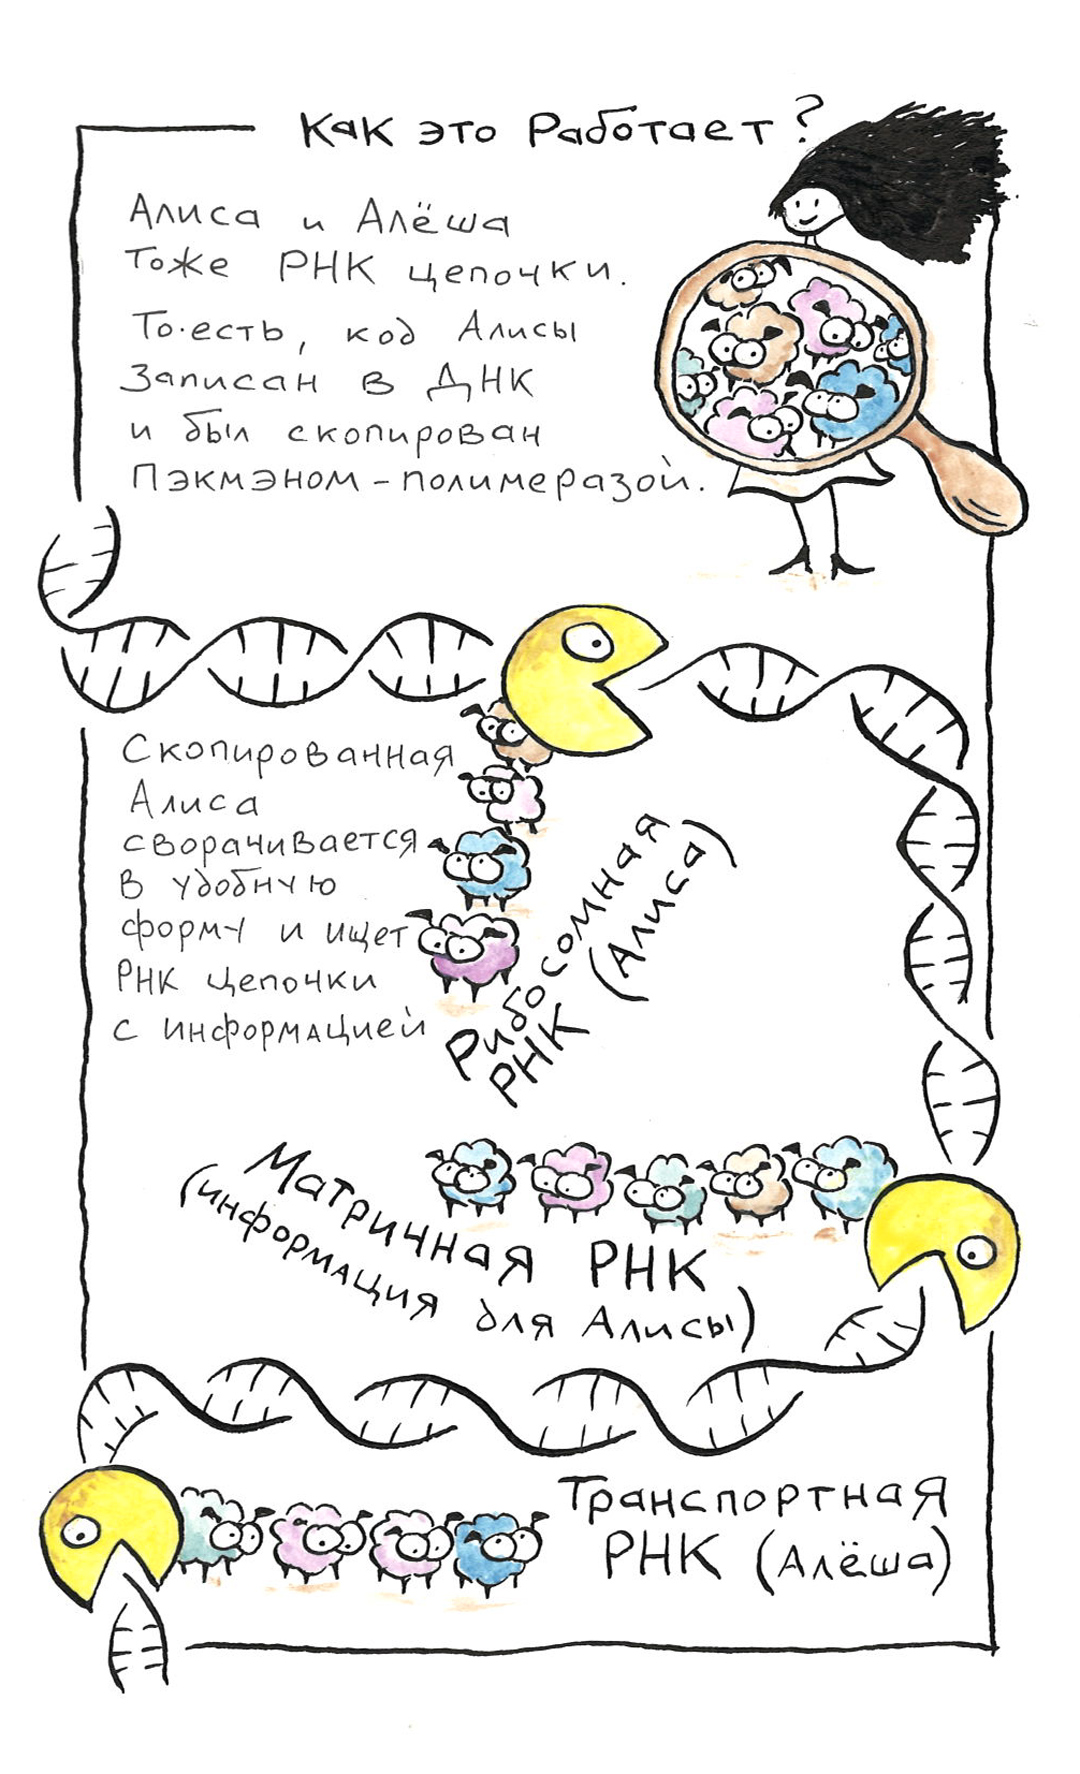 Как это Работает?
Алиса и Алёша
Тоже РНК цепочки.
То.есть, код Алисы
Записан в ДНК
и был скопирован
Пэкмэном-полимеразой.
Скопированная
Алиса
сворачивается
в удобную
форму и ищет
РНК цепочки
с информацией
Рибосомная
РНК (Алиса)
Матричная РНК
(информация для Алисы)
Транспортная
РНК (Алёша)